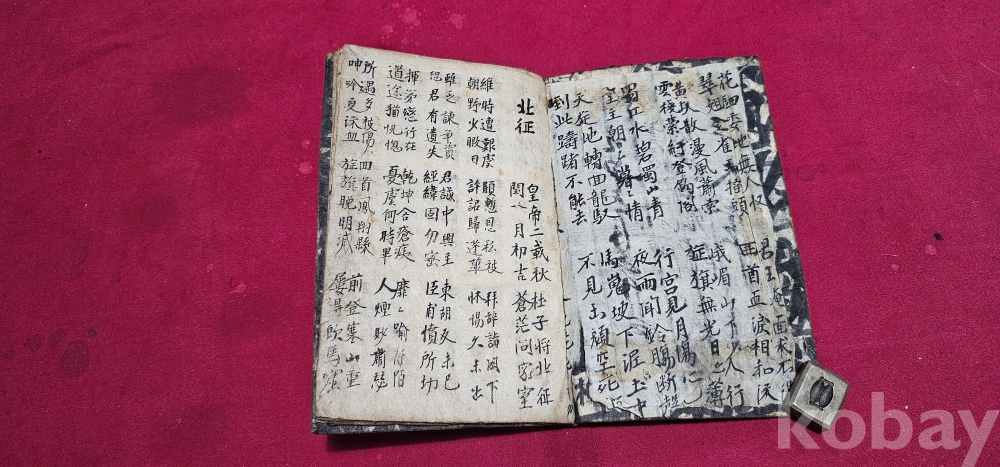 花鈿委地無人收 君王掩面
翠翹金雀玉搔頭 回首血淚相和流
黃埃散漫風蕭索 峨嵋山下少人行
雲棧縈紆登劍閣 旌旗無光日色薄
蜀江水碧蜀山青 行宮見月傷心
主朝々暮情 夜雨聞鈴腸斷聲
天旋地轉回龍馭 馬嵬坡下泥土中
到此躊躇不能去 不見玉顏空死處
北征
皇帝二載秋 杜子將北征
閏八月初吉 蒼茫問家室
維時遭艱虞 顧慙恩私被 拜辭詣闕下
朝野少暇日 許詔歸蓬蓽 怵惕久未出
雖乏諫諍資 君誠中興主 東胡反未已
恐君有遺失 經緯固勿密 臣甫憤所切
揮涕戀行在 乾坤含瘡痍 靡々踰阡陌
道途猶恍惚 憂虞何時畢 人煙眇蕭瑟
所遇多被傷 回首鳳翔縣 前登寒山重
呻吟更流血 旌旗晚明滅 屢得飲馬窟
kobay